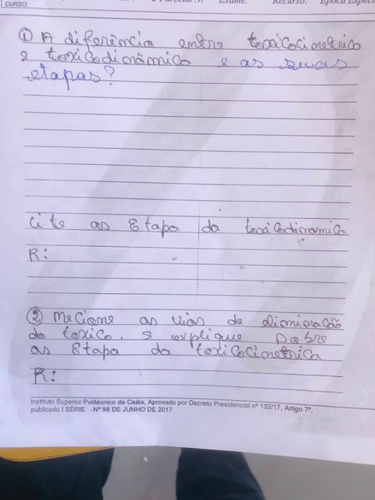 CURSO: Exame: Recurso: Época Especi
① A diferência entre toxicocimetrica
e toxicodinâmica e as suas
etapas?
cite as Etapa da toxicodinamica
R:
② Mecione as vias de diminação
do toxico. E explique Sobre
as Etapa da toxicocimetrica
R:
Instituto Superior Politécnico da Caála, Aprovado por Decreto Presidencial nº 132/17, Artigo 7º,
publicado I SÉRIE -Nº 98 DE JUNHO DE 2017